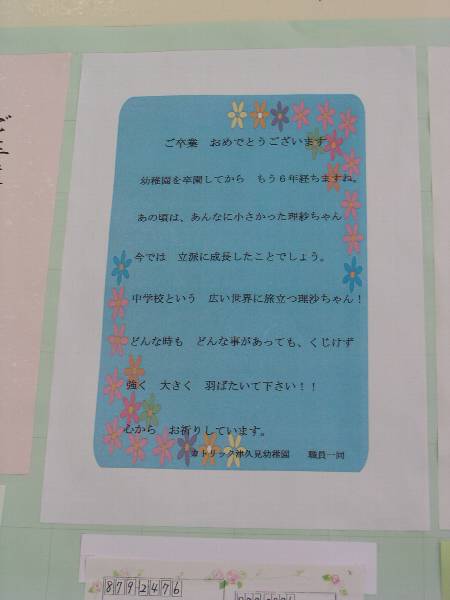 ご卒業 おめでとうございます
幼稚園を卒園してから もう6年経ちますね。
あの頃は、あんなに小さかった理紗ちゃん
今では 立派に成長したことでしょう。
中学校という 広い世界に旅立つ理沙ちゃん！
どんな時も どんな事があっても、くじけず
強く 大きく 羽ばたいて下さい！！
心から お祈りしています。
カトリック津久見幼稚園 職員一同
879-2476